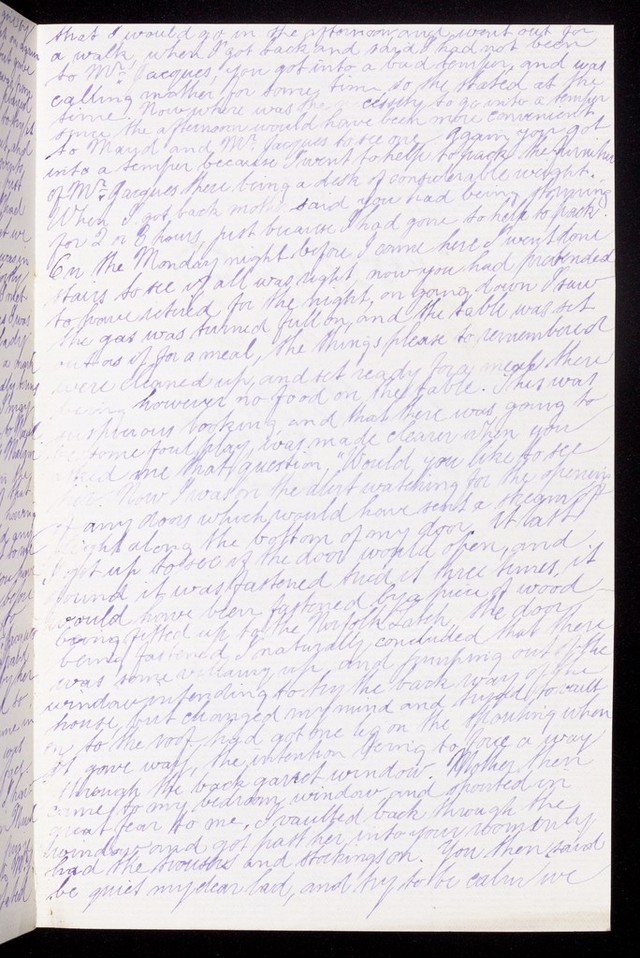 that I would go in the afternoon, and went out for
a walk, when I got back and said I had not been
to Mrs Jacques, you got into a bad temper, and was
calling mother for some time, so she stated at the
time. Now where was the cessity to go into a temper
since the afternoon would have been more convenient
to Mayd and Mrs Jacques to see one. Again you got
into a temper because I went to help to pack the furniture
of Mrs Jacques there being a desk of considerable weight.
When I got back moth said you had being storming
for 2 or 3 hours, just because I had gone to help to pack.
On the Monday night before I come here I went done
stairs to see if all was right, now you had pretended
to have retired for the night, on going down I saw
the gas was turned full on, and the table was set
out as if for a meal, the things please to remembered
were cleaned up, and set ready for a meal there
being however no food on the table. This was
suspicious looking and that there was going to
be some foul play, was made clearer when you
asked me that question, "Would you like to see
Now I was on the alert watching for the opening
of any doors which would have sent a stream of
light along the bottom of my door. At last
I got up to see if the door would open, and
found it was fastened tried it three times, it
would have been fastened by a piece of wood
being fitted up to the Norfolk Latch, the door
being fastened, I naturally concluded that there
was some villainy up and jumping out of the
window intending to try the back way of the
house, but changed my mind and tryed to vault
on to the roof, had got one leg on the spouting when
it gave way, the intention being to force a way
through the back garret window. Mother then
came to my bedroom window and shouted in
great fear to me, I vaulted back through the
window and got past her into your room only
had the trousers and stockings on. You then said
be quiet my dear lad, and try to be calm we